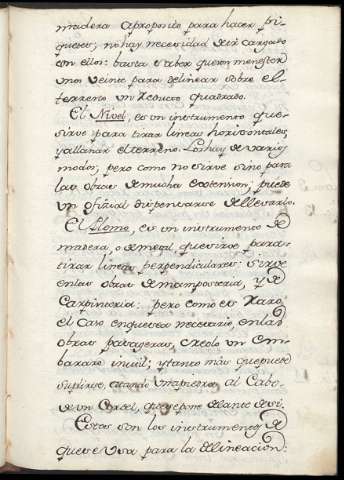 madera aproposito para hacer pi-
quetes; no hay necesidad de ir cargado
con ellos: basta saber que son menester
unos veinte para delinear sobre el
terreno un Reducto quadrado.
El Nivel, es un instrumento que
sirve para tirar lineas horizontales,
y allanar el terreno. Los hay de varios
modos; pero como no sirve sino para
las obras de mucha extension, puede
un oficial dispensarse de llevarlo.
El Plomo, es un instrumento de
madera, o de metal que sirve para
tirar lineas perpendiculares: sirve
en las obras de mamposteria, y de
Carpinteria: pero como es raro
el caso en que sea necesario, en las
obras pasageras, creolo un em-
barazo inutil; y tanto mas que puede
suplirse, atando una piedra al Cabo
de un Cordel, que se pone delante de si.
Estos son los instrumentos de
que se usa para la delineacion.